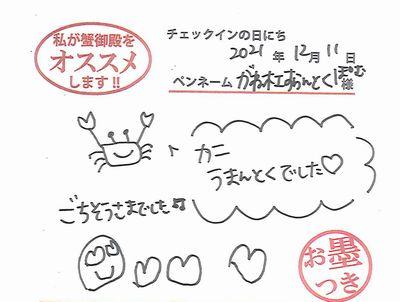 私が蟹御殿を
オススメ
します!!
チェックインの日にち
2021年12月11日
ペンネーム 様
カニ
うまんとくでした♡
ごちそうさまでした♫
お墨
つき